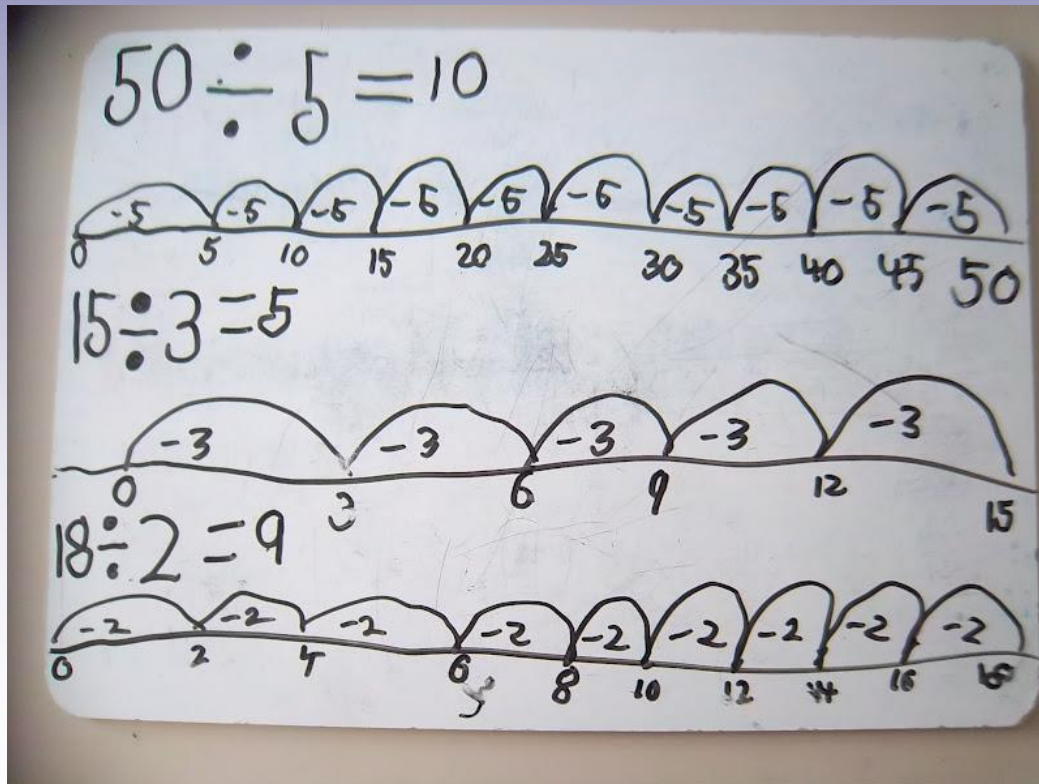 50 ÷ 5 = 10
-5 -5 -5 -5 -5 -5 -5 -5 -5 -5
0 5 10 15 20 25 30 35 40 45 50
15 ÷ 3 = 5
-3 -3 -3 -3 -3
0 3 6 9 12 15
18 ÷ 2 = 9
-2 -2 -2 -2 -2 -2 -2 -2 -2
0 2 4 6 8 10 12 14 16